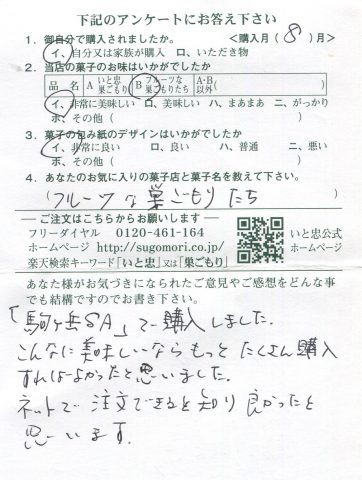 下記のアンケートにお答え下さい
1．御自分で購入されましたか。 ＜購入月（8）月＞
イ、自分又は家族が購入 ロ、いただき物
2．当店の菓子のお味はいかがでしたか
品名 A いと忠巣ごもり B フルーツな巣ごもりたち A・B以外
イ、非常に美味しい ロ、美味しい ハ、まあまあ ニ、がっかり
ホ、その他（ ）
3．菓子の包み紙のデザインはいかがでしたか
イ、非常に良い ロ、良い ハ、普通 ニ、悪い
ホ、その他（ ）
4．あなたのお気に入りの菓子店と菓子名を教えて下さい。
（フルーツな巣ごもりたち ）
ご注文はこちらからお願いします
フリーダイヤル 0120-461-164
ホームページ http://sugomori.co.jp/
楽天検索キーワード「いと忠」又は「巣ごもり」
いと忠公式
ホームページ
あなた様がお気づきになられたご意見やご感想をどんな事
でも結構ですのでお書き下さい。
「駒ヶ岳SA」で購入しました.
こんなに美味しいならもっとたくさん購入
すればよかったと思いました.
ネットで注文できると知り良かったと
思います.